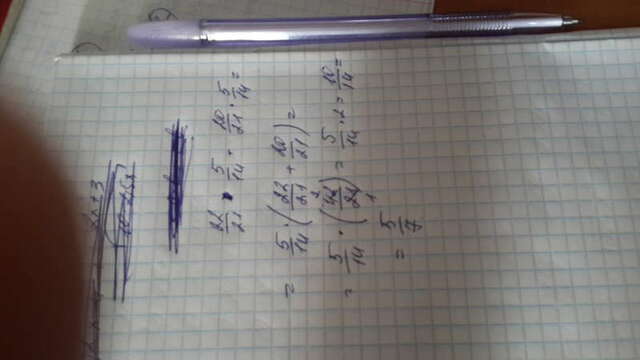 2x + 3
22/21 · 5/14 · 20/21 · 5/14 =
= 5/14 · (22/21 + 20/21) =
= 5/14 · (42/21) 2 1 = 5/14 · 2 = 10/14 =
= 5/7